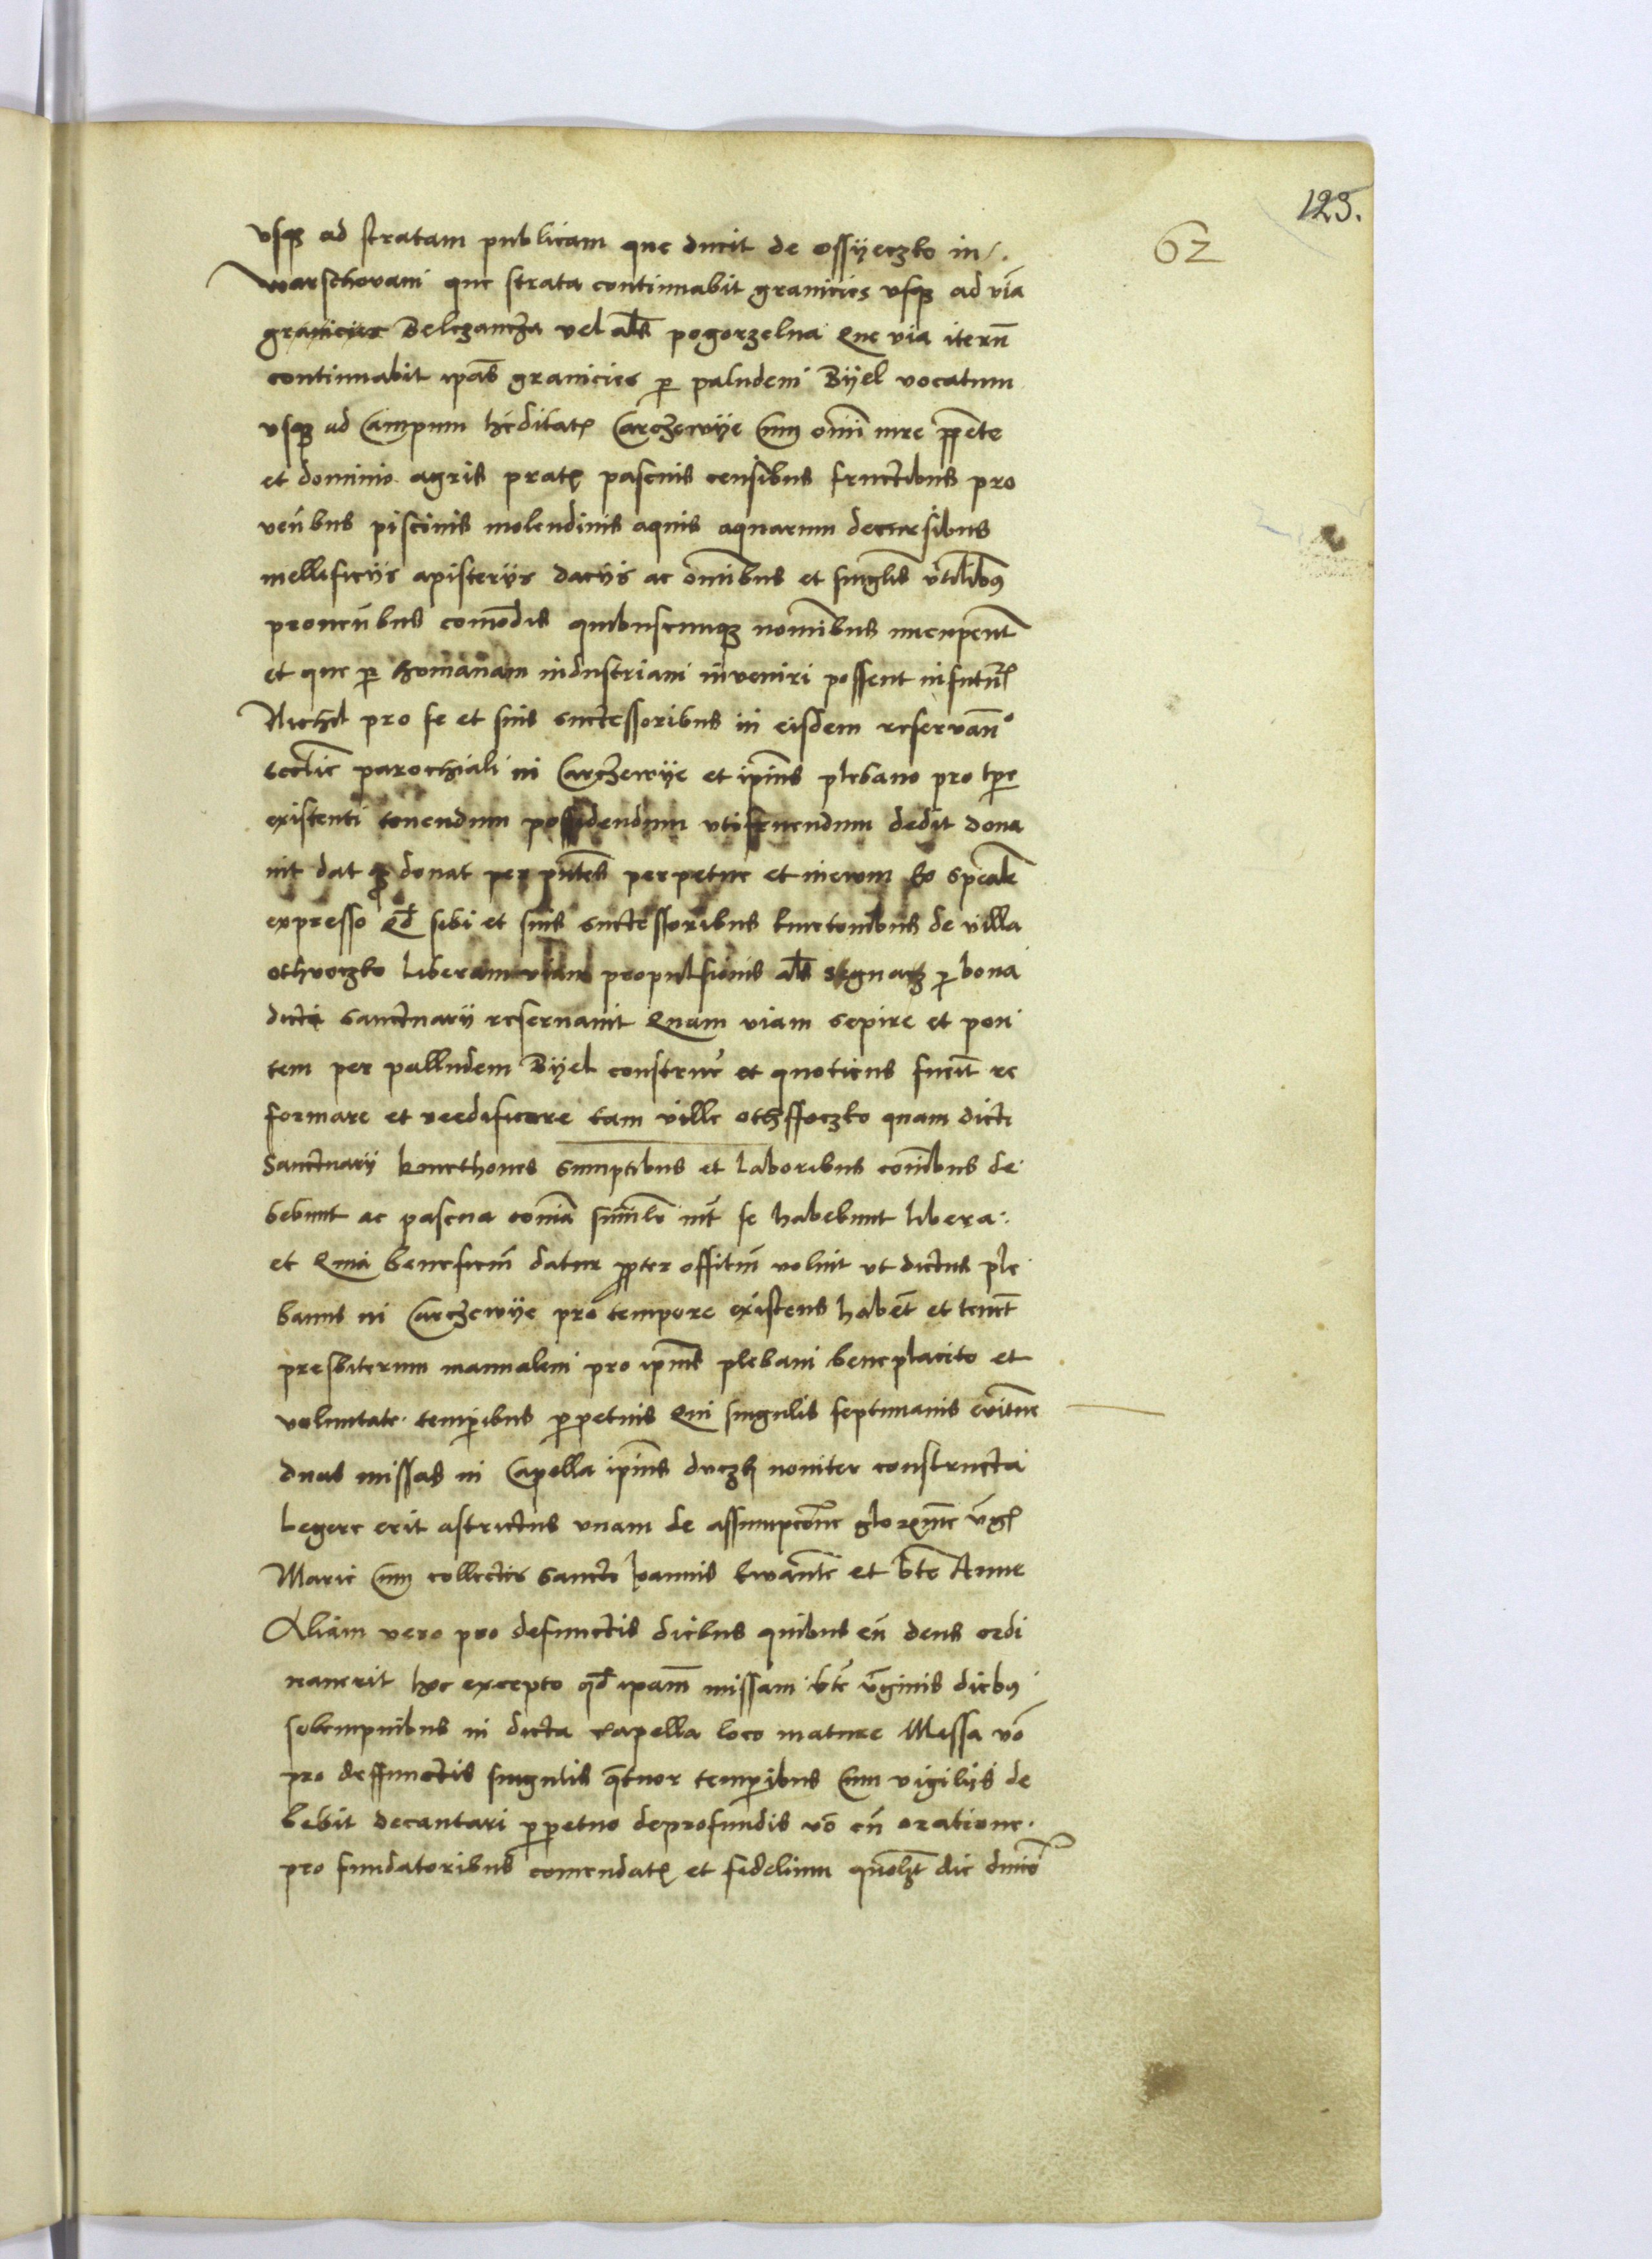 123.
62
vsq3 ad stratam publicam que ducit de Ossyeczko in
Warschoviam que strata continuabit granicies vsq3 ad viã
granicies Belczancza vel als pogorzelna Que via iterũ
continuabit ipãs granicies p paludem Byel vocatum
vsq3 ad Campum hẽditatis Carczewye Cum omni iure ppete
et dominio agris pratis pascuis censibus fructibus pro
ventibus piscinis molendinis aquis aquarum decursibus
mellificys apisterys dacys ac omibus et singlis vtilibus
proventibus comodis quibuscumq3 nomibus nucupent
et que p humanam industriam inveniri possent in futur
Nichil pro se et suis successoribus in eisdem reservañ
ecclie parochiali in Carczewye et ipius plebano pro tpe
existenti tenendum possidendum vtifruendum dedit dona
uit dat donat per pñtes perpetue et in ewm eo specale
expresso qd sibi et suis successoribus kmetonibus de villa
othvoczko liberam viam propulsionis als p bona
dicti sanctuary reservauit Quam viam sepire et pon
tem per palludem Byel construe et quoticus fuerit re
formare et reedificare tam ville othffoczko quam dicti
Sanctuary kmethones sumptibus et laboribus comibus de
bebunt ac pascua comia similr int se habebunt libera
et Quia beneficiũ datur ppter offitiũ voluit vt dictus ple
banus in Carczewye pro tempore existens habet et tenet
presbiterum manualem pro ipius plebani beneplacito et
voluntate temporibus ppetuis Qui singulis septimanis
duas missas in Capella ipius noviter constructa
legere erit astrictus vnam de assumpcone glorme vgis
Marie Cum collectis sancte Joannis et bte Anne
Aliam vero pro defunctis diebus quibus eũ deus ordi
nauerit hoc excepto qd ipam missam bte vginis diebus
solempnibus in dicta capella loco mature Messa vo
pro deffunctis singulis qtuor temporibus Cum vigilys de
bebit decantari ppetuo deprofundis vo cũ oratione
pro fundatoribus comendatis et fedelium quolzt die dnico